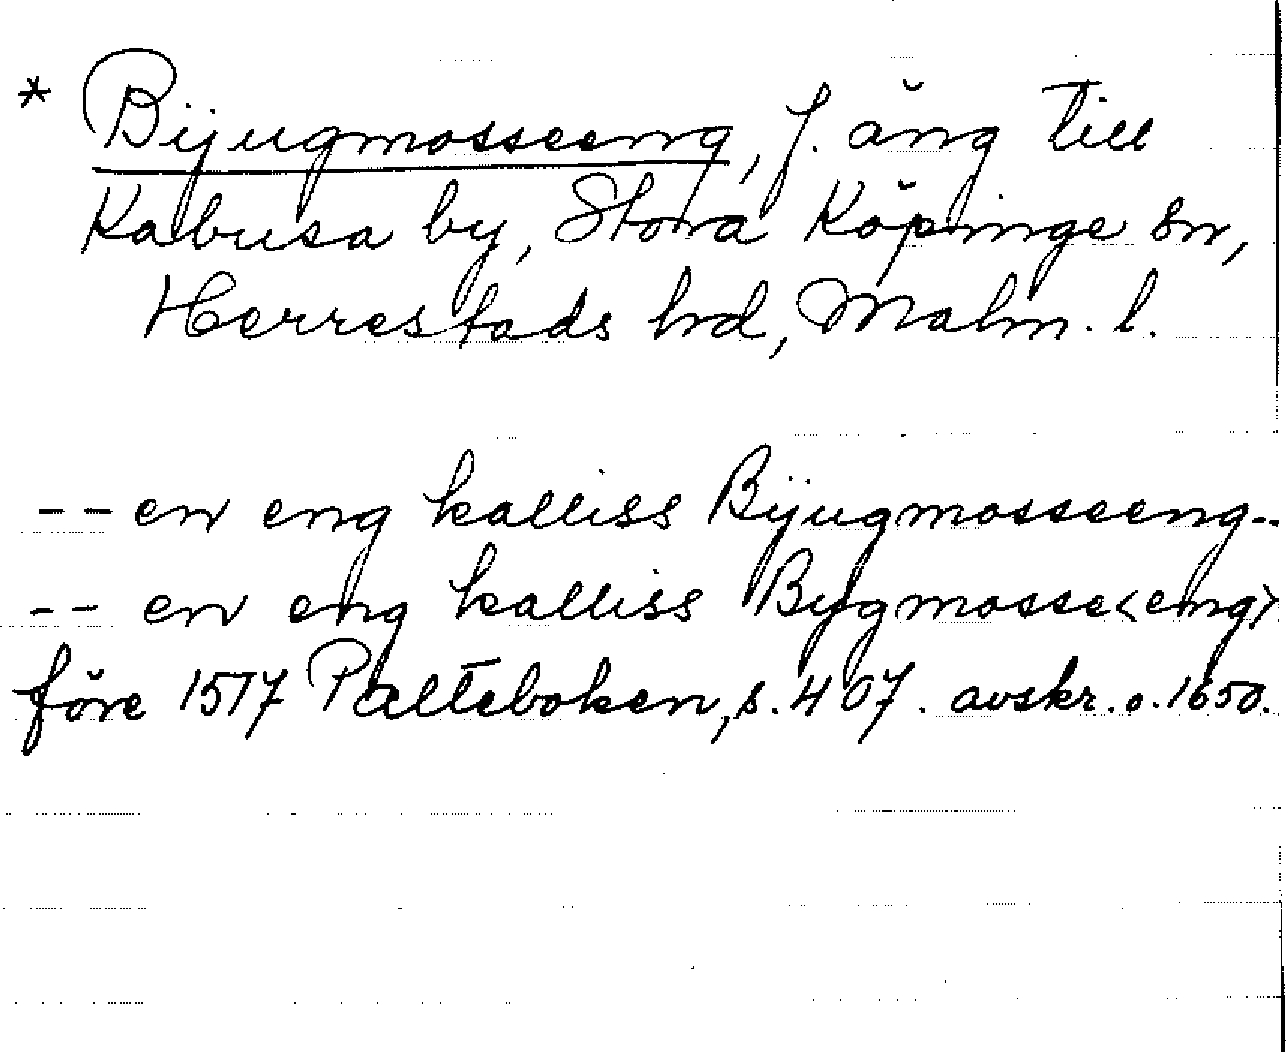 * Bijugmosseeng, f. äng till
Kabusa by, Stora Köpinge sn,
Herrestads hd, Malm. l.
-- en eng kalliss Bijugmosseeng--
-- en eng kalliss Bygmosse<eng>
före 1517 Palteboken, s. 407. avskr. o. 1650.